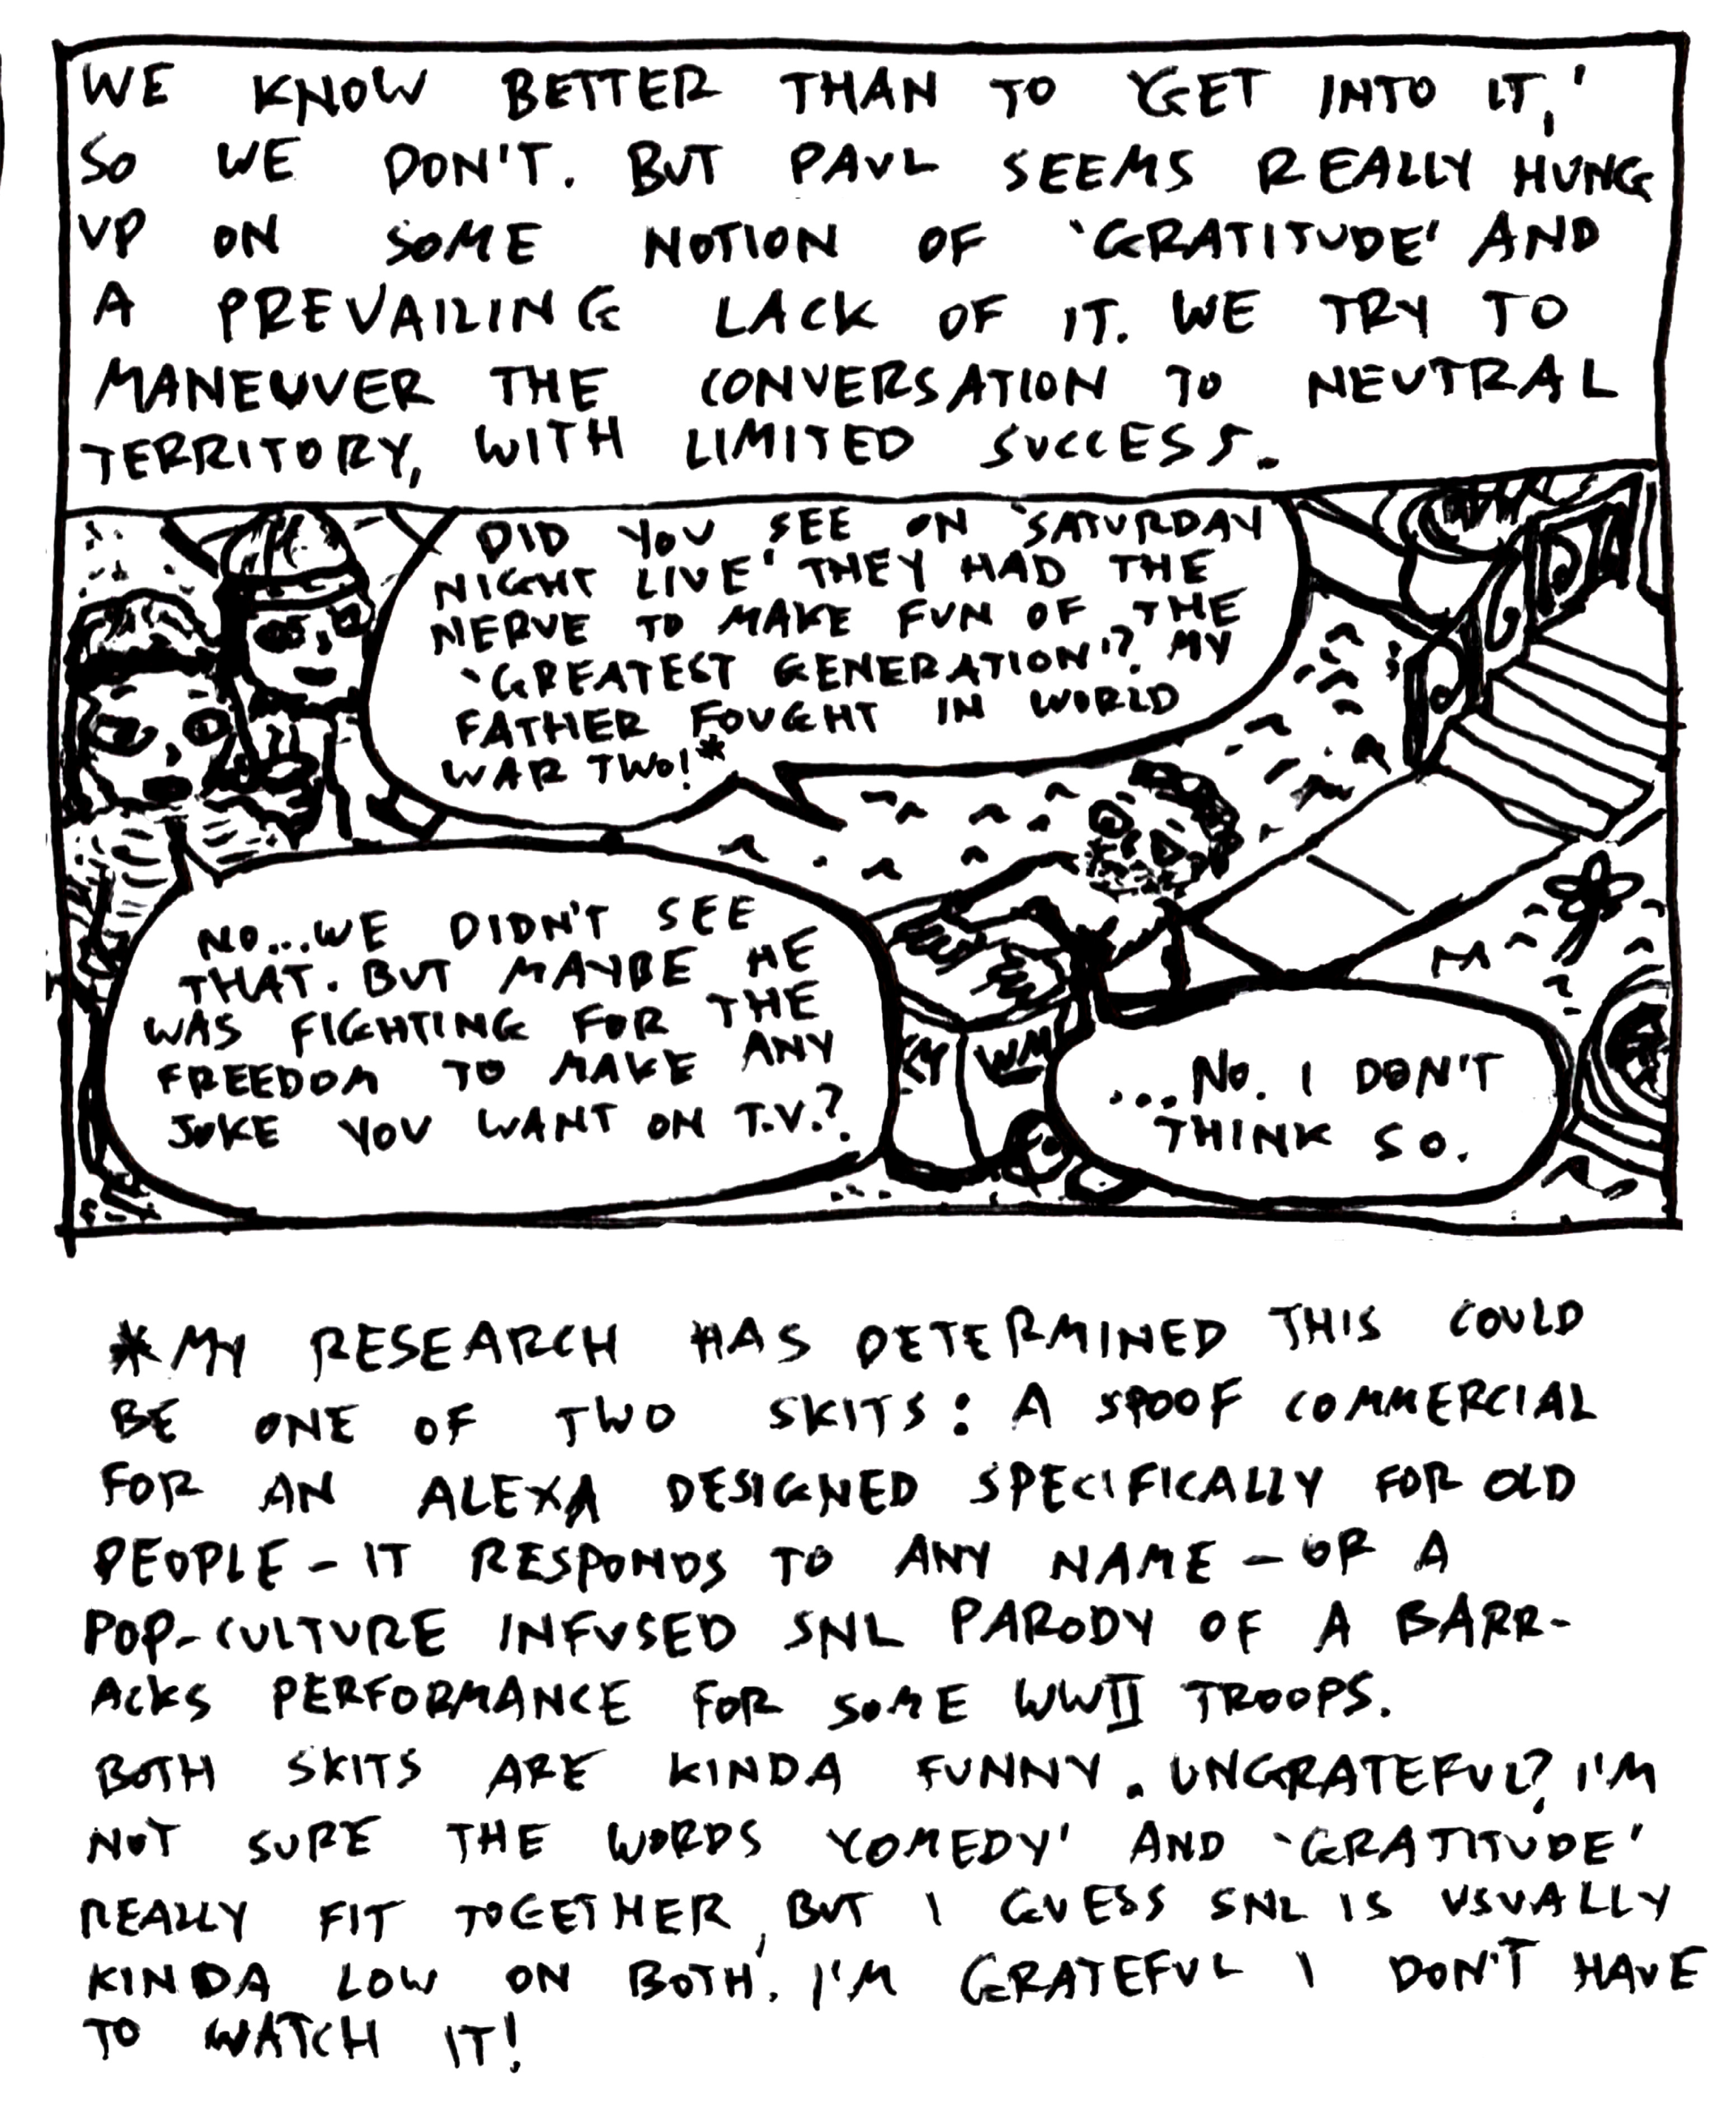 WE KNOW BETTER THAN TO 'GET INTO IT,'
SO WE DON'T. BUT PAUL SEEMS REALLY HUNG
UP ON SOME NOTION OF 'GRATITUDE' AND
A PREVAILING LACK OF IT. WE TRY TO
MANEUVER THE CONVERSATION TO NEUTRAL
TERRITORY, WITH LIMITED SUCCESS.
DID YOU SEE ON 'SATURDAY
NIGHT LIVE' THEY HAD THE
NERVE TO MAKE FUN OF THE
'GREATEST GENERATION'? MY
FATHER FOUGHT IN WORLD
WAR TWO!*
NO...WE DIDN'T SEE
THAT. BUT MAYBE HE
WAS FIGHTING FOR THE
FREEDOM TO MAKE ANY
JOKE YOU WANT ON T.V.?
...NO. I DON'T
THINK SO.
*MY RESEARCH HAS DETERMINED THIS COULD
BE ONE OF TWO SKITS: A SPOOF COMMERCIAL
FOR AN ALEXA DESIGNED SPECIFICALLY FOR OLD
PEOPLE - IT RESPONDS TO ANY NAME - OR A
POP-CULTURE INFUSED SNL PARODY OF A BARR-
ACKS PERFORMANCE FOR SOME WWII TROOPS.
BOTH SKITS ARE KINDA FUNNY. UNGRATEFUL? I'M
NOT SURE THE WORDS 'COMEDY' AND 'GRATITUDE'
REALLY FIT TOGETHER, BUT I GUESS SNL IS USUALLY
KINDA LOW ON BOTH. I'M GRATEFUL I DON'T HAVE
TO WATCH IT!